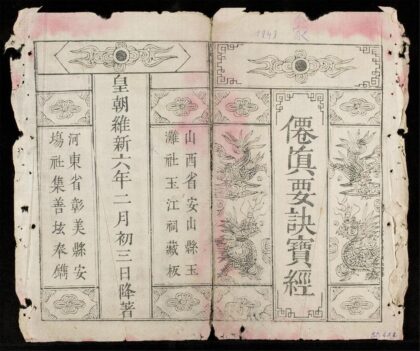 僊眞要訣寶經
山西省安山縣玉
灘社玉江祠藏板
皇朝維新六年二月初三日降著
河東省彰美縣安
塲社集善坛奉鐫